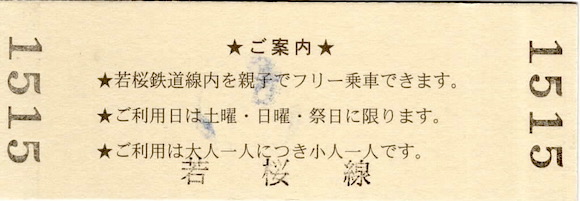 ★ご案内★
★若桜鉄道線内を親子でフリー乗車できます。
★ご利用日は土曜・日曜・祭日に限ります。
★ご利用は大人一人につき小人一人です。
若桜線
1515
1515